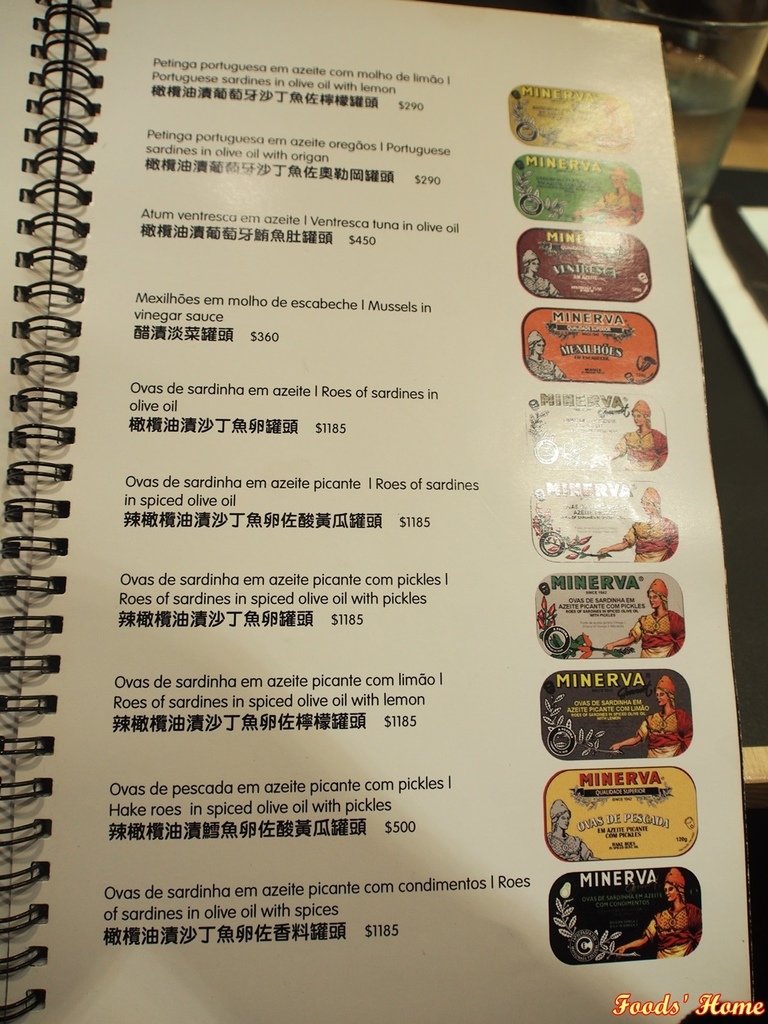 Petinga portuguesa em azeite com molho de limão |
Portuguese sardines in olive oil with lemon
橄欖油漬葡萄牙沙丁魚佐檸檬罐頭 $290
Petinga portuguesa em azeite oregãos | Portuguese
sardines in olive oil with origan
橄欖油漬葡萄牙沙丁魚佐奧勒岡罐頭 $290
Atum ventresca em azeite | Ventresca tuna in olive oil
橄欖油漬葡萄牙鮪魚肚罐頭 $450
Mexilhões em molho de escabeche | Mussels in
vinegar sauce
醋漬淡菜罐頭 $360
Ovas de sardinha em azeite | Roes of sardines in
olive oil
橄欖油漬沙丁魚卵罐頭 $1185
Ovas de sardinha em azeite picante | Roes of sardines
in spiced olive oil
辣橄欖油漬沙丁魚卵佐酸黃瓜罐頭 $1185
Ovas de sardinha em azeite picante com pickles |
Roes of sardines in spiced olive oil with pickles
辣橄欖油漬沙丁魚卵罐頭 $1185
Ovas de sardinha em azeite picante com limão |
Roes of sardines in spiced olive oil with lemon
辣橄欖油漬沙丁魚卵佐檸檬罐頭 $1185
Ovas de pescada em azeite picante com pickles |
Hake roes in spiced olive oil with pickles
辣橄欖油漬鱈魚卵佐酸黃瓜罐頭 $500
Ovas de sardinha em azeite picante com condimentos | Roes
of sardines in olive oil with spices
橄欖油漬沙丁魚卵佐香料罐頭 $1185
MINERVA
MINERVA
MINERVA
VENTRESCA
EM AZEITE
MINERVA
QUALIDADE SUPERIOR
MEXILHÕES
EM ESCABECHE
MINERVA
MINERVA
MINERVA
SINCE 1942
OVAS DE SARDINHA EM
AZEITE PICANTE COM PICKLES
ROES OF SARDINES IN SPICED OLIVE OIL
WITH PICKLES
MINERVA
OVAS DE SARDINHA EM
AZEITE PICANTE COM LIMÃO
ROES OF SARDINES IN SPICED OLIVE OIL
WITH LEMON
MINERVA
QUALIDADE SUPERIOR
SINCE 1942
OVAS DE PESCADA
EM AZEITE PICANTE
COM PICKLES
120g
MINERVA
OVAS DE SARDINHA EM AZEITE
COM CONDIMENTOS
Foods' Home